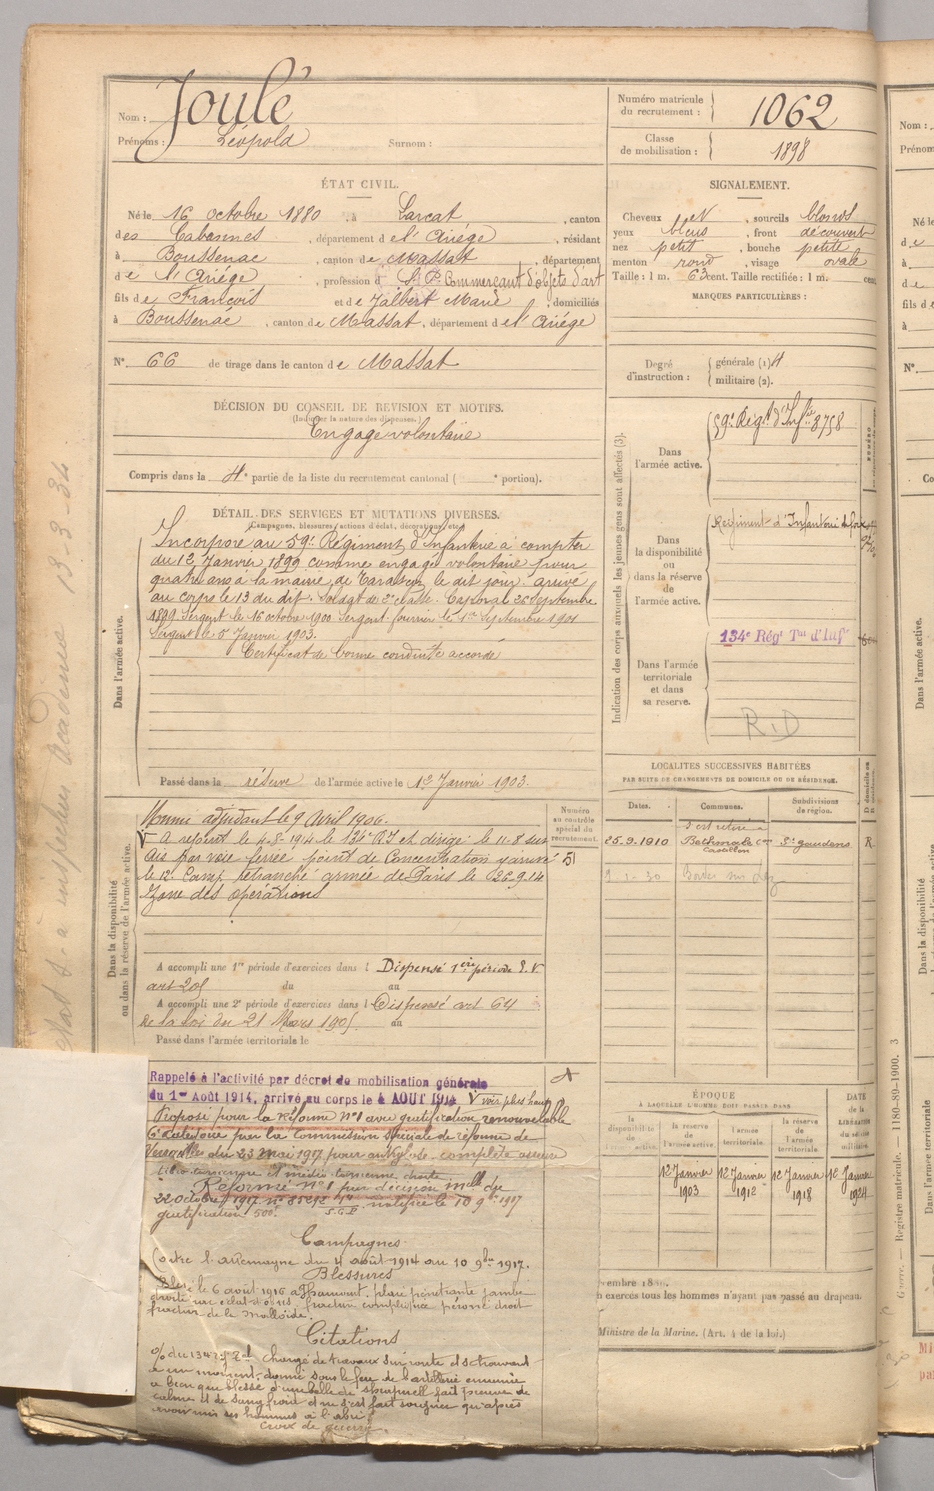 Nom : Joulé
Prénoms : Léopold Surnom :
Numéro matricule du recrutement : 1062
Classe de mobilisation : 1898
ÉTAT CIVIL.
Né le 16 octobre 1880, à Larcat, canton
des Cabannes, département de l'Ariège, résidant
à Boussenac, canton de Massat, département
de l'Ariège, profession d Commerçant d'objets d'art
fils de François et de Jalbert Marie, domiciliés
à Boussenac, canton de Massat, département de l'Ariège
N° 66 de tirage dans le canton de Massat
SIGNALEMENT.
Cheveux et, sourcils blonds
yeux bleus, front découvert
nez petit, bouche petite
menton rond, visage ovale
Taille : 1 m. 63 cent. Taille rectifiée : 1 m. cent.
MARQUES PARTICULIÈRES :
Degré d'instruction : générale (1) 4
militaire (2).
DÉCISION DU CONSEIL DE REVISION ET MOTIFS.
(Indiquer la nature des dispenses.)
Engagé volontaire
Compris dans la 4e partie de la liste du recrutement cantonal ( e portion).
DÉTAIL DES SERVICES ET MUTATIONS DIVERSES.
(Campagnes, blessures, actions d'éclat, décorations, etc.)
Dans l'armée active.
Incorporé au 59e Régiment d'Infanterie à compter
du 12 Janvier 1899 comme engagé volontaire pour
quatre ans à la mairie de Tarascon le dit jour arrivé
au corps le 13 du dit. Soldat de 2e classe. Caporal 26 Septembre
1899. Sergent le 16 octobre 1900 Sergent fourrier le 1er Septembre 1901
Sergent le 5 Janvier 1903.
Certificat de bonne conduite accordé
Passé dans la réserve de l'armée active le 12 Janvier 1903.
Indication des corps auxquels les jeunes gens sont affectés (3).
Dans l'armée active.
59e Régt d'Infrie 8758
Dans la disponibilité ou dans la réserve de l'armée active.
Régiment d'Infanterie de Foix
Dans l'armée territoriale et dans sa réserve.
134e Régt Tal d'Infie
R.D
LOCALITÉS SUCCESSIVES HABITÉES
PAR SUITE DE CHANGEMENTS DE DOMICILE OU DE RÉSIDENCE.
Dates. Communes. Subdivisions de région.
S'est retiré à
25.9.1910 Bethmale con Castillon St gaudens R.
9-1-30 Bordes sur Lez
Dans la disponibilité ou dans la réserve de l'armée active.
Numéro au contrôle spécial du recrutement.
51
Nommé adjudant le 9 Avril 1906.
V A rejoint le 4-8-1914 le 134e RI et dirigé le 11-8 sur
par voie ferrée point de Concentration y arrivé
le 12. Camp retranché armée de Paris le 26-9-14
Zone des opérations
A accompli une 1re période d'exercices dans l Dispensé 1ère période
art 201 du au
A accompli une 2e période d'exercices dans l Dispensé art 64
de la loi du 21 Mars 1905. au
Passé dans l'armée territoriale le
Rappelé à l'activité par décret de mobilisation générale
du 1er Août 1914, arrivé au corps le 4 AOUT 1914 V voir plus haut
Proposé pour la Réforme N°1 avec gratification renouvelable
6e catégorie par la Commission spéciale de réforme de
Versailles du 23 mai 1917 pour ankylose complète
droite
Réformé N°1 par décision mlle du
22 octobre 1917 notifiée le 10 9bre 1917
gratification 500f.
Campagnes
Contre l'allemagne du 4 août 1914 au 10 9bre 1917.
Blessures
Blessé le 6 août 1916 à plaie pénétrante jambe
droite par éclat d'obus, fracture compliquée péroné droit
fracture de la malléole.
Citations
O/ du 134e RI Chargé de travaux sur route et se trouvant
à un moment donné sous le feu de l'artillerie ennemie
a bien que blessé d'une balle de shrapnell fait preuve de
calme et de sang froid et ne s'est fait soigner qu'après
avoir mis ses hommes à l'abri.
Croix de guerre.
ÉPOQUE
À LAQUELLE L'HOMME DOIT PASSER DANS
la disponibilité de l'armée active. la réserve de l'armée active. l'armée territoriale. la réserve de l'armée territoriale.
DATE de la LIBÉRATION du service militaire
12 Janvier 1903 12 Janvier 1912 12 Janvier 1918 12 Janvier 1924
n exercés tous les hommes n'ayant pas passé au drapeau.
Ministre de la Marine. (Art. 4 de la loi.)
Guerre. — Registre matricule. — 1180-89-1900. 3
inspection académie 13-3-34
Nom :
Prénoms